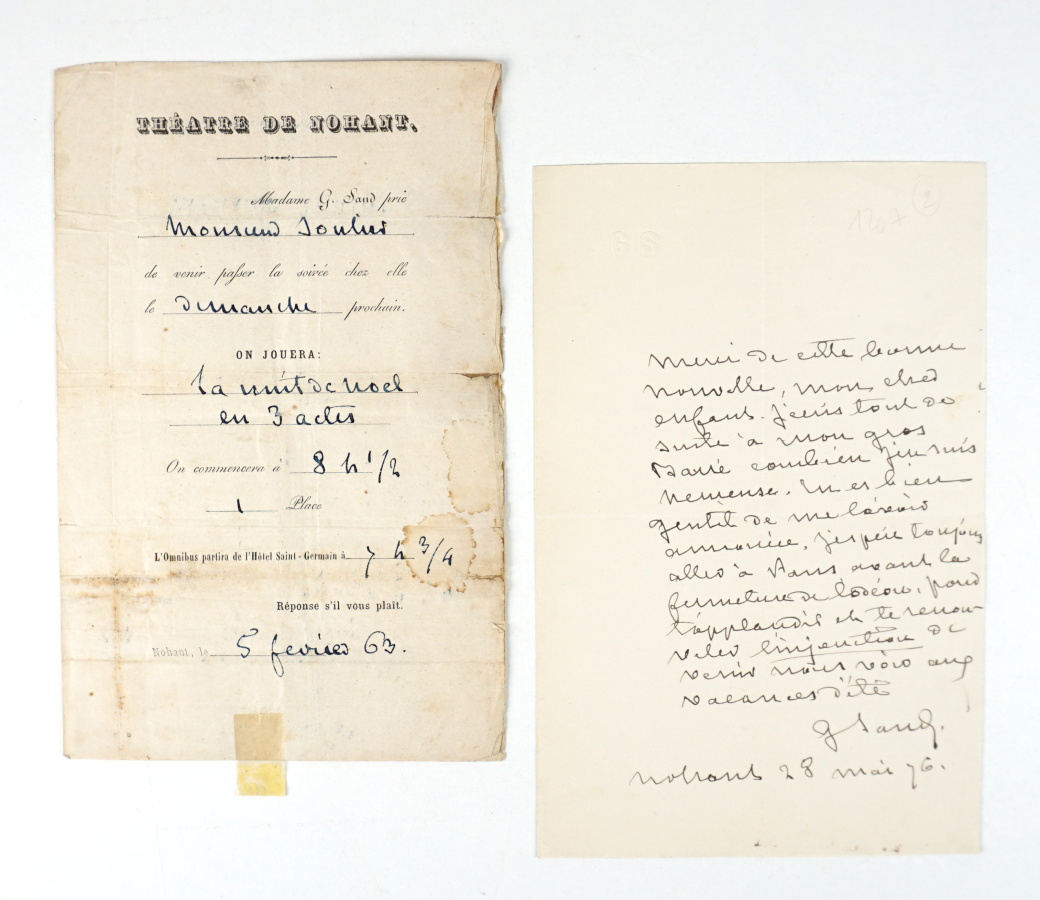 THÉATRE DE NOHANT.
Madame G. Sand prie
Monsieur Soulier
de venir passer la soirée chez elle
le dimanche prochain.
ON JOUERA:
La nuit de noel
en 3 actes
On commencera à 8 h 1/2
1 Place
L'Omnibus partira de l'Hôtel Saint-Germain à 7 h 3/4
Réponse s'il vous plait.
Nohant, le 5 fevrier 63.
GS
1207
2
Merci de cette bonne
nouvelle, mon cher
enfant. J'écris tout de
suite à mon gros
combien j'en suis
heureuse. Tu es bien
gentil de me l'avoir
annoncée. J'espère toujours
aller à Paris avant la
fermeture de l'odéon, pour
t'applaudir et te renou
veler l'injonction de
venir nous voir aux
vacances d'été
G Sand.
Nohant 28 mai 76.